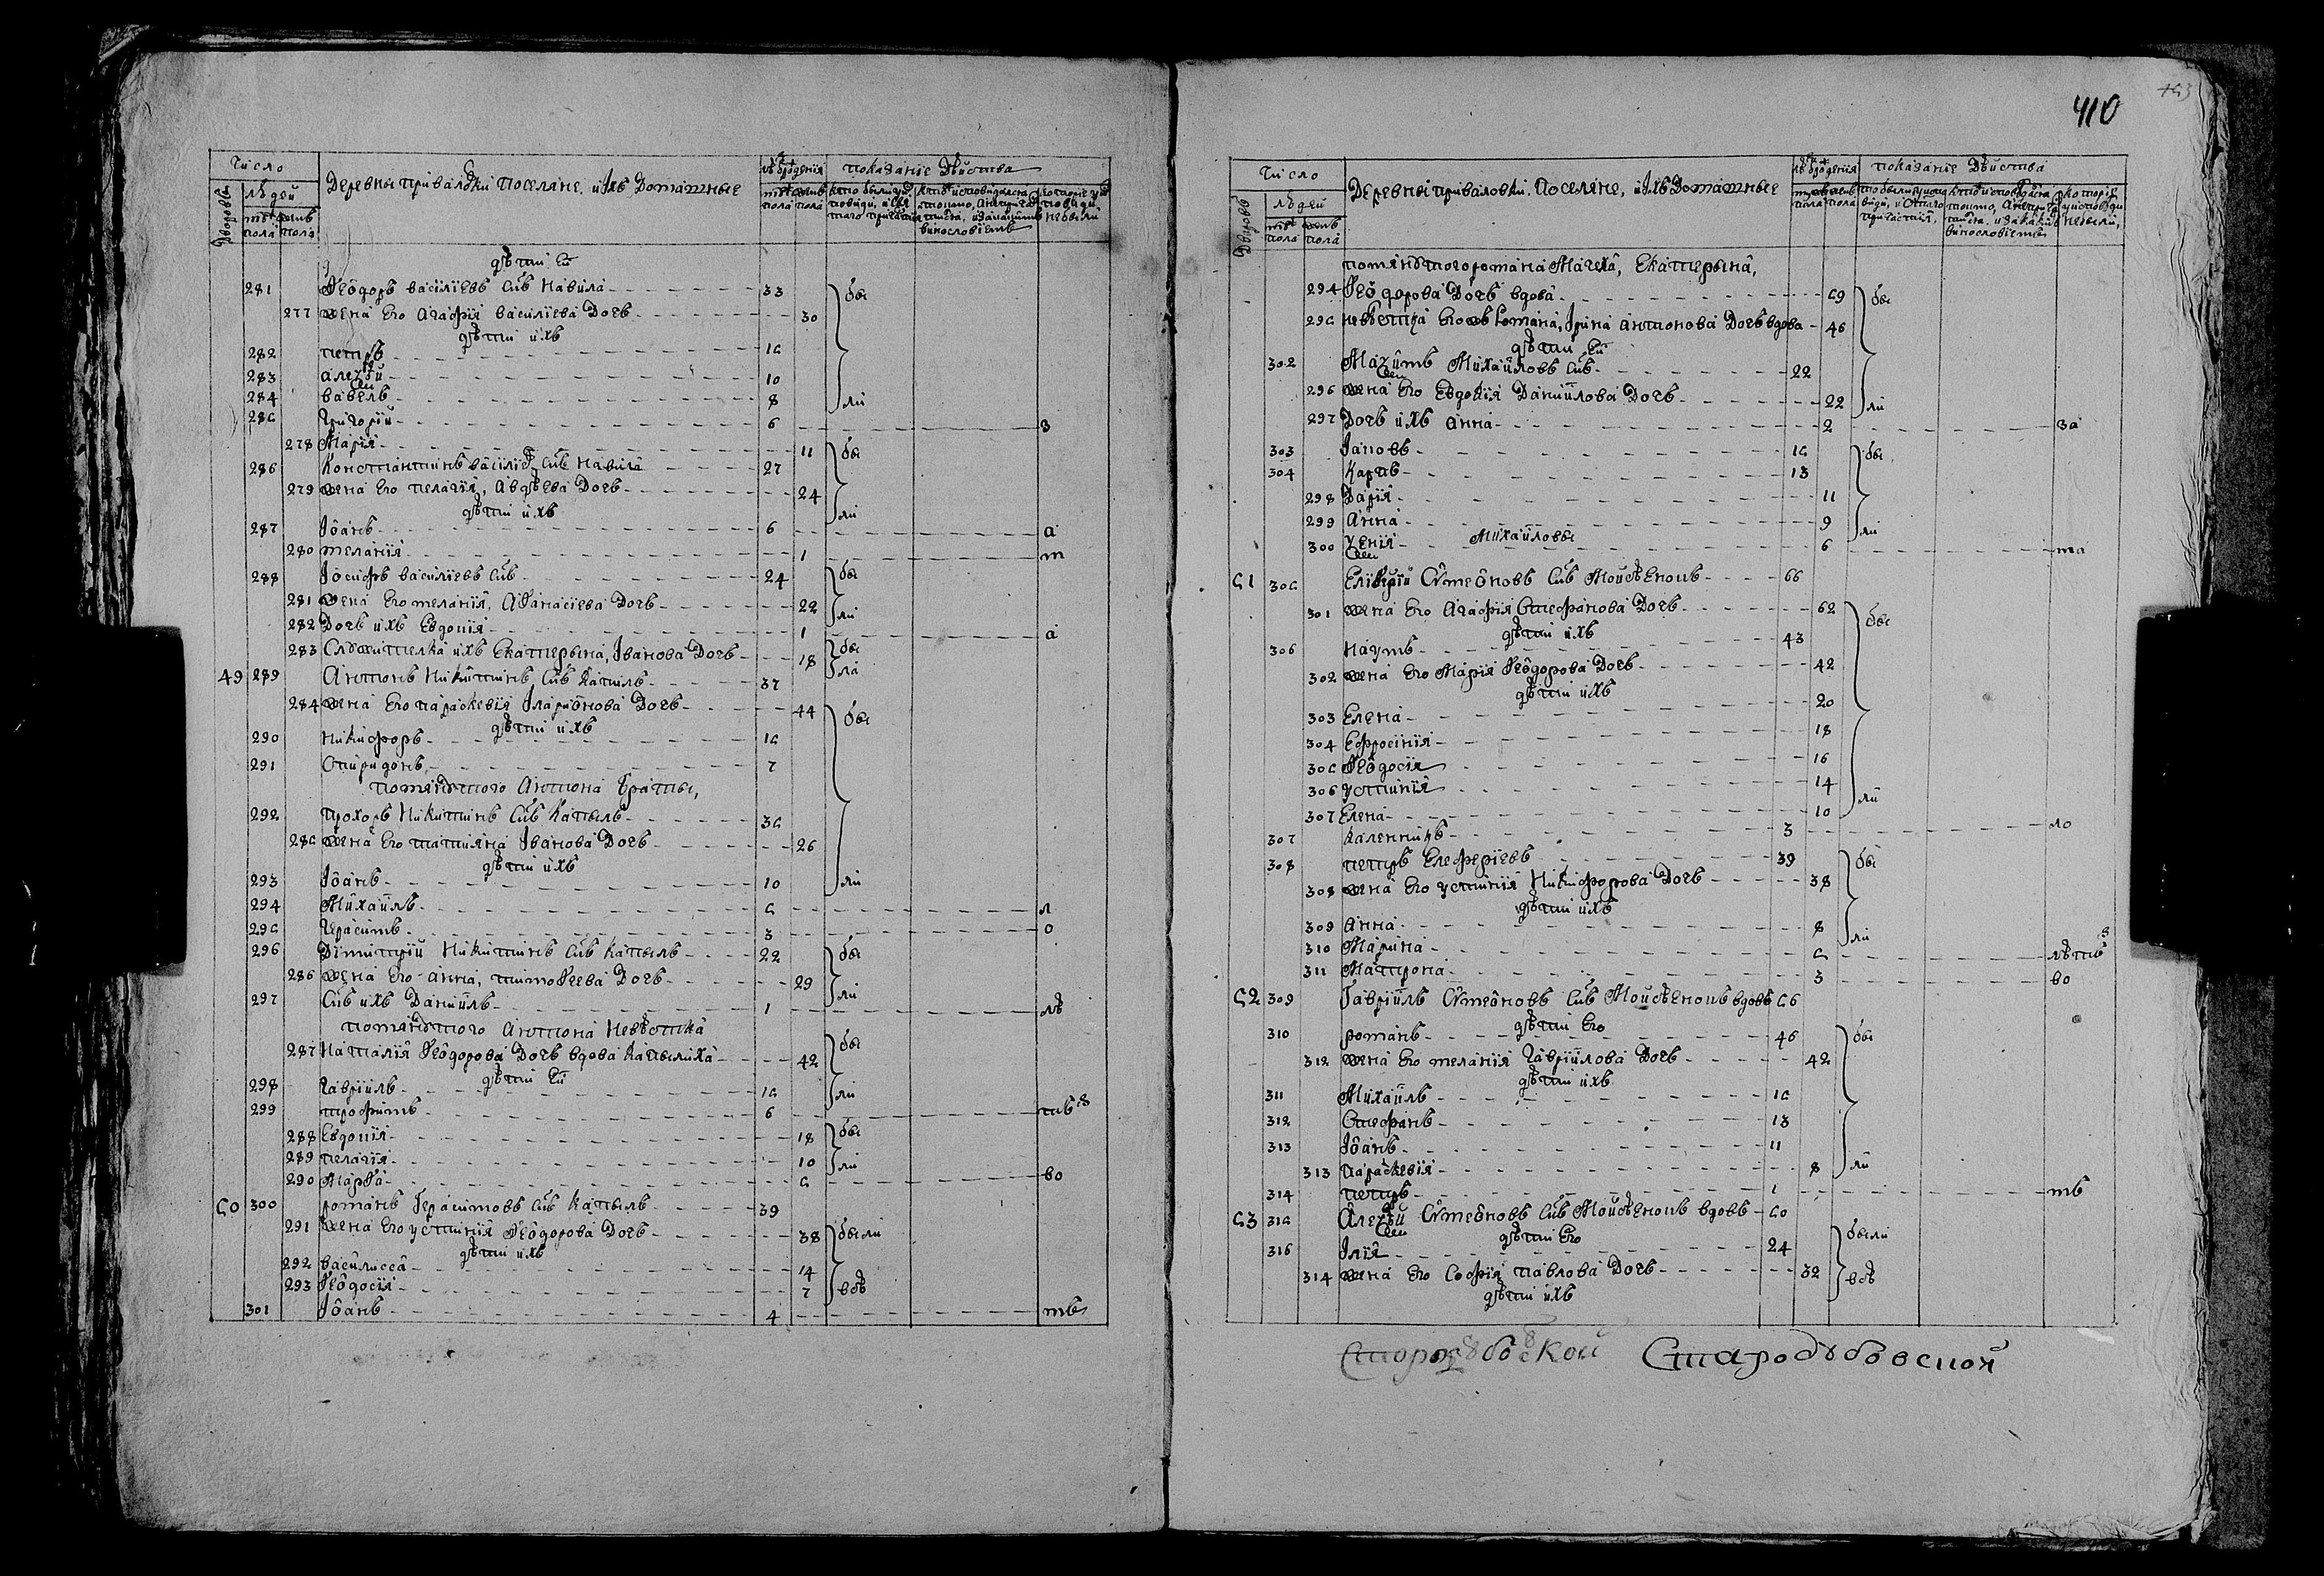 410
Число
Деревны приваловки поселяне, и Ихъ Домашные
Показаніе Дѣйства
Дворовъ
людей
пола пола
дѣти Ей
281 Ѳеодоръ василіевъ Сн҃ъ Навила 33 бы
277 жена Его Агафія василіева Дочь 30
дѣти ихъ
282 петръ 15
283 алеѯѣй 10
284 павелъ 8 ли
285 Григорій 6 з
278 Марія 11 бы
286 Константинъ василіевъ Сн҃ъ Навила 27
279 жена Его пелагія, Авдѣева Дочь 24
дѣти ихъ ли
287 Іоанъ 6 а
280 меланія 1 м
288 Іосифъ василіевъ Сн҃ъ 24 бы
281 жена Его меланія, Аѳанасіева Дочь 22 ли
282 Дочь ихъ Евдокія 1 а
283 Служителка ихъ Екатерына, Іванова Дочь 18 бы ла
49 289 Антонъ Никитинъ Сн҃ъ Капыль 37
284 жена Его параскевія Іларіонова Дочь 44 бы
дѣти ихъ
290 Никифоръ 15
291 Спиридонъ 7
помянутого Антона браты,
292 прохоръ Никитинъ Сн҃ъ Капыль 35
285 жена Его татияна Іванова Дочь 26
дѣти ихъ
293 Іоанъ 10 ли
294 Михаилъ 5 л
295 Герасимъ 3 о
296 Димитрій Никитинъ Сн҃ъ Капыль 22 бы
286 жена Его анна, тимоѳеева Дочь 29
297 Сн҃ъ ихъ Даніилъ 1 ли лѣ
помянутого Антона Невѣстка
287 Наталія Ѳеодорова Дочь вдова Капылиха 42 бы
дѣти Ей
298 Гавріилъ 15 ли
299 трофимъ 6
288 Евдокія 18 бы
289 пелагія 10 ли
290 Марѳа 5 во
50 300 романъ Герасимовъ Сн҃ъ Капыль 39
291 жена Его устинія Ѳеодорова Дочь 38 были
дѣти ихъ
292 василисса 14
293 Ѳеодосія 7
301 Іоанъ 4
Число
Деревны приваловки Поселяне, и Ихъ Домашные
Показаніе Дѣйства
Дворовъ
людей
пола пола
помянутого романа Мачеха, Екатерына,
294 Ѳеодорова Дочь вдова 59 бы
295 невѣстка Еговъ Романа, Ірина антонова Дочь вдова 46
дѣти Ей
302 Маѯимъ Михайловъ Сн҃ъ 22
296 жена Его Евдокія Даніилова Дочь 22 ли
297 Дочь ихъ анна 2 за
303 Іаковъ 15 бы
304 Карпъ 13
298 Дарія 11
299 анна 9 ли
Михайловы
300 ѯенія 6 ма
51 305 Симеоновъ Сн҃ъ Мойсѣенокъ 66
301 жена Его Агафія Стефанова Дочь 62 бы
дѣти ихъ
306 Наумъ 43
302 жена Его Марія Ѳеодорова Дочь 42
дѣти ихъ
303 Елена 20
304 Ефросинія 18
305 Ѳеодосія 16
306 устинія 14
307 Елена 10 ли
307 каленникъ 3 ло
308 петръ Елеферіевъ 39 бы
308 жена Его устинія Никифорова Дочь 38
дѣти ихъ
309 анна 8 ли
310 Марина 5
311 Матрона 3 во
52 309 Гавріилъ Симеоновъ Сн҃ъ Мойсѣенокъ вдовъ 56
дѣти Его
310 романъ 46 бы
312 жена Его меланія Гавріилова Дочь 42
дѣти ихъ
311 Михаилъ 15
312 Стефанъ 13
313 Іоанъ 11
313 параскевія 8 ли
314 петръ 1 мъ
53 315 Алеѯѣй Симеоновъ Сн҃ъ Мойсѣенокъ вдовъ 50
дѣти Его
316 Ілія 24 были
314 жена Его Софія павлова Дочь 32
дѣти ихъ
Стародубовской